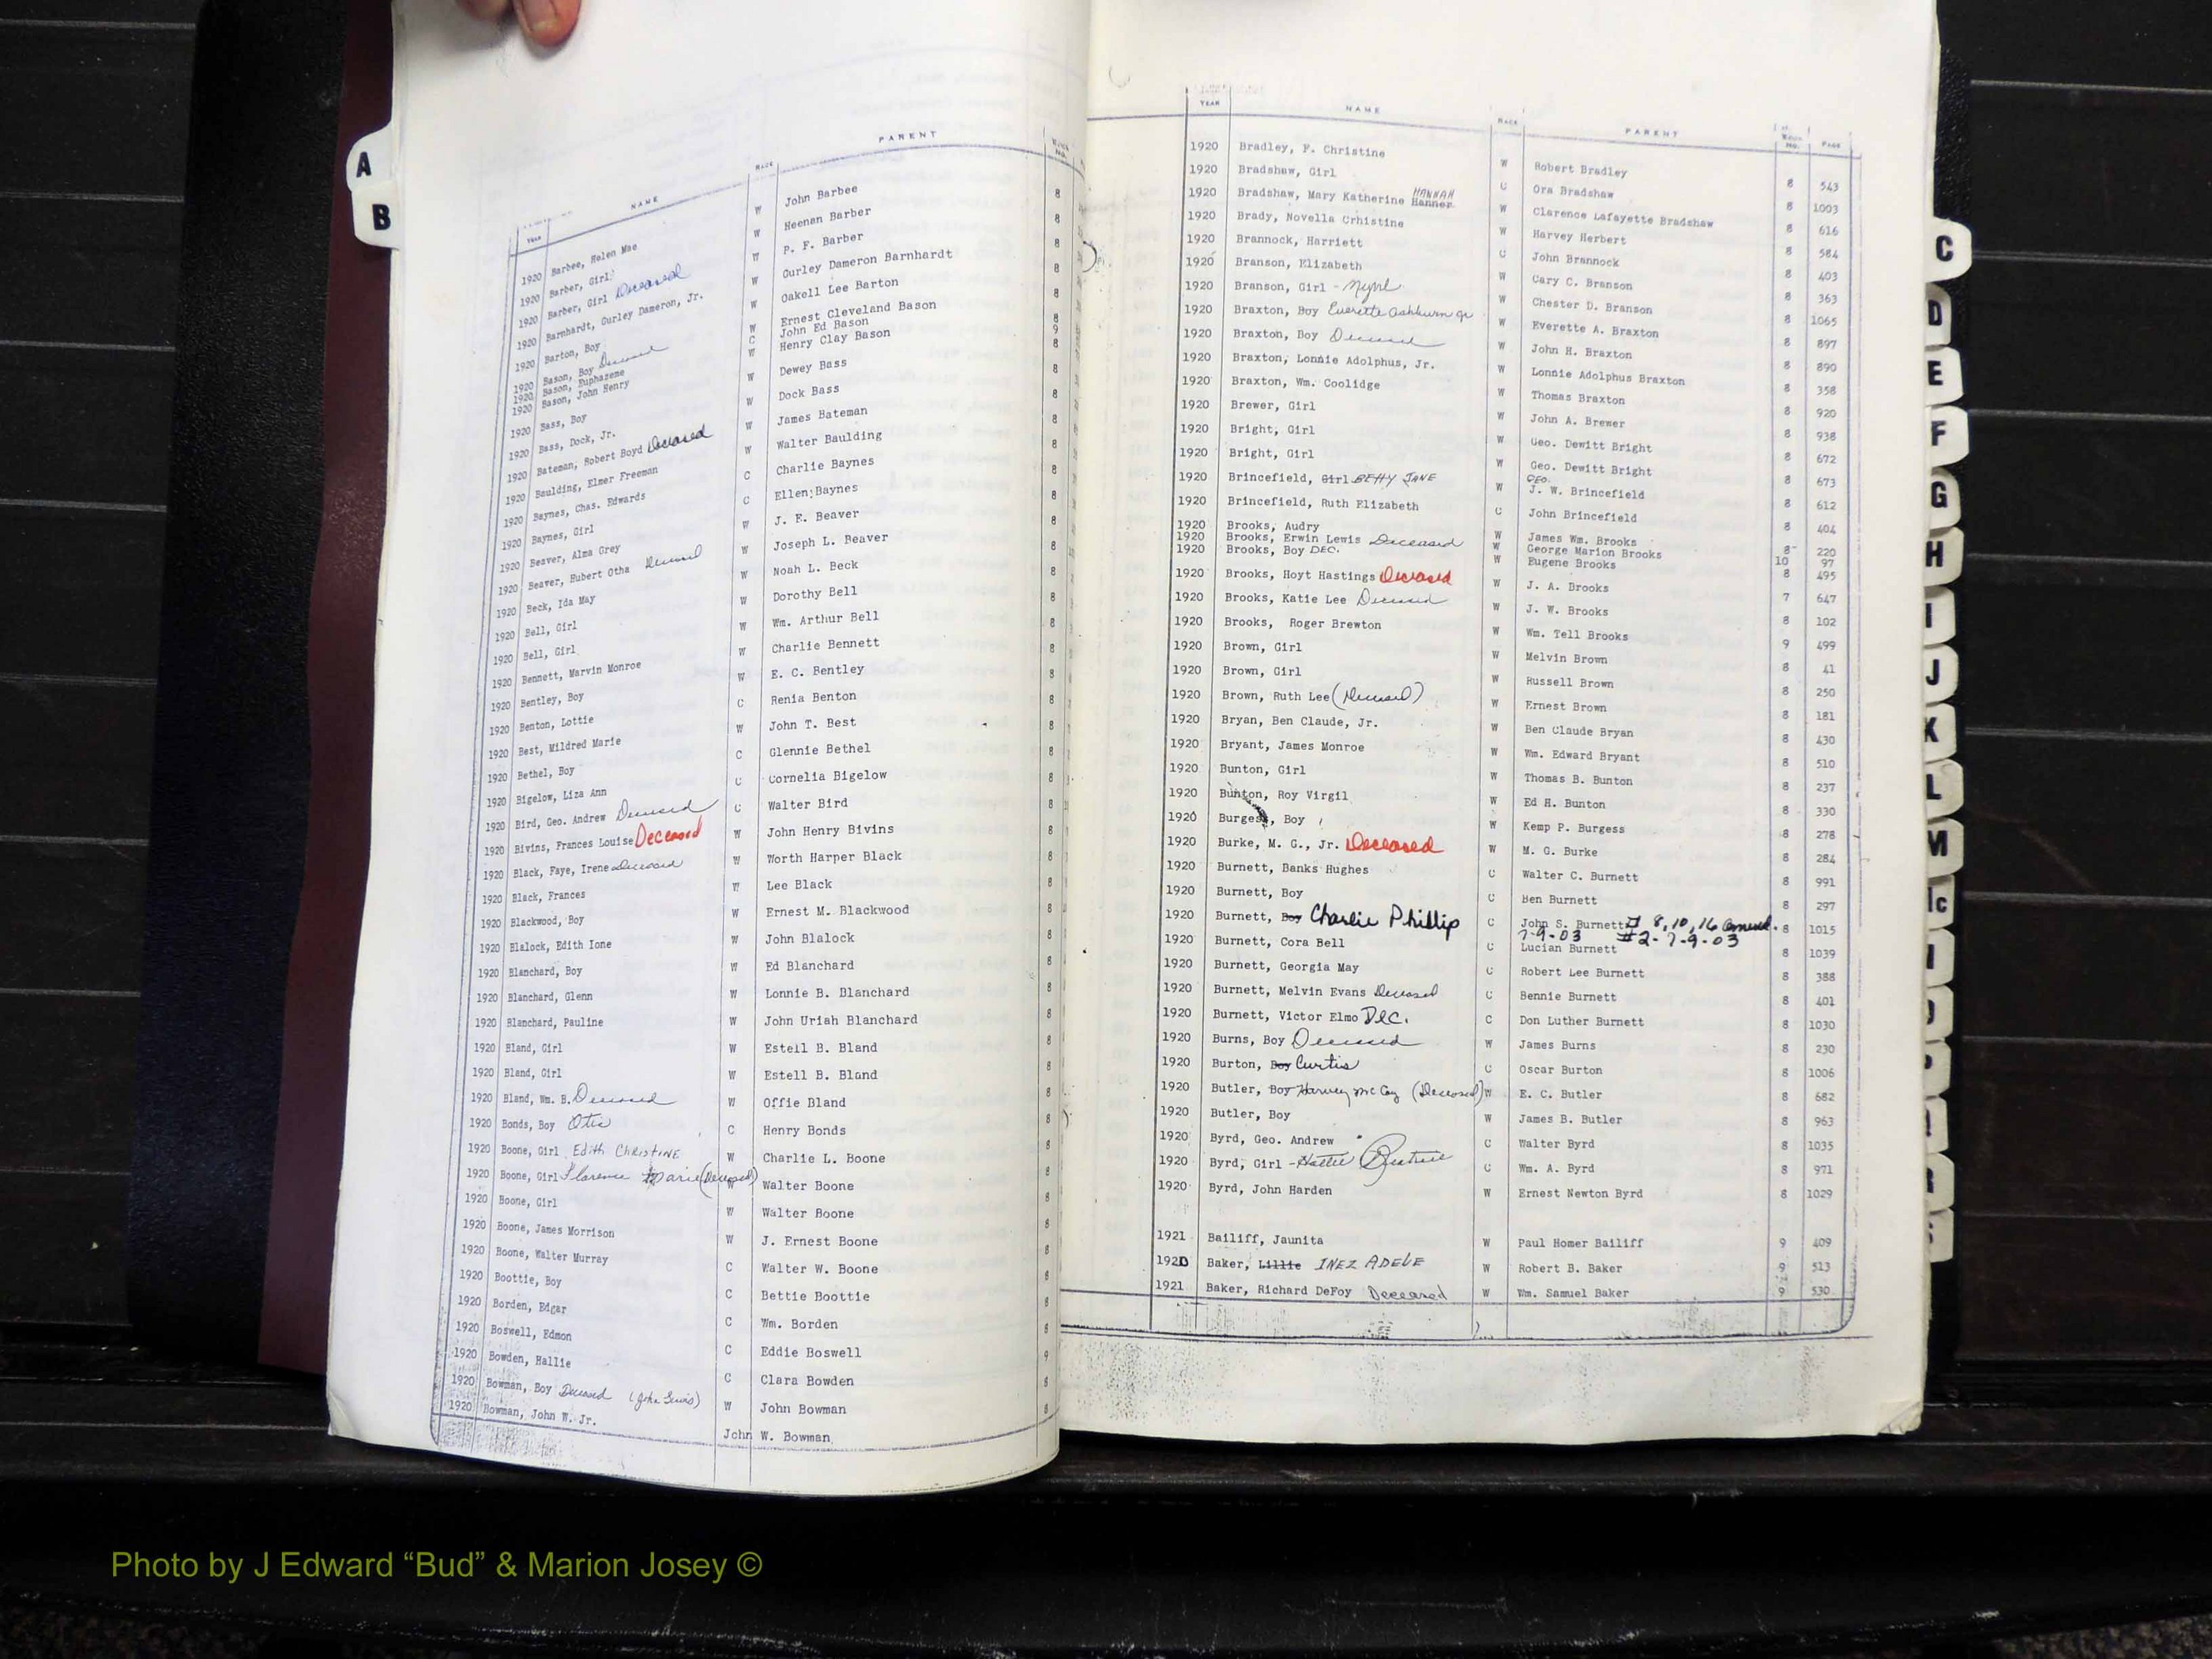 A
B
YEAR NAME RACE PARENT
1920 Barbee, Helen Mae W John Barbee 8
1920 Barber, Girl W Heenan Barber 8
1920 Barber, Girl Deceased W P. F. Barber 8
1920 Barnhardt, Gurley Dameron, Jr. W Gurley Dameron Barnhardt 8
1920 Barton, Boy W Oakell Lee Barton 8
1920 Bason, Boy Deceased W Ernest Cleveland Bason 8
1920 Bason, Euphazeme C John Ed Bason 9
1920 Bason, John Henry W Henry Clay Bason 8
1920 Bass, Boy W Dewey Bass 8
1920 Bass, Dock, Jr. W Dock Bass 8
1920 Bateman, Robert Boyd Deceased W James Bateman 8
1920 Baulding, Elmer Freeman W Walter Baulding 8
1920 Baynes, Chas. Edwards C Charlie Baynes 8
1920 Baynes, Girl C Ellen Baynes 8
1920 Beaver, Alma Grey W J. E. Beaver 8
1920 Beaver, Hubert Otha Deceased W Joseph L. Beaver 8
1920 Beck, Ida May W Noah L. Beck 8
1920 Bell, Girl W Dorothy Bell 8
1920 Bell, Girl W Wm. Arthur Bell 8
1920 Bennett, Marvin Monroe W Charlie Bennett 8
1920 Bentley, Boy W E. C. Bentley 8
1920 Benton, Lottie C Renia Benton 8
1920 Best, Mildred Marie W John T. Best 8
1920 Bethel, Boy C Glennie Bethel 8
1920 Bigelow, Liza Ann C Cornelia Bigelow 8
1920 Bird, Geo. Andrew Deceased C Walter Bird 8
1920 Bivins, Frances Louise Deceased W John Henry Bivins 8
1920 Black, Faye, Irene Deceased W Worth Harper Black 8
1920 Black, Frances W Lee Black 8
1920 Blackwood, Boy W Ernest M. Blackwood 8
1920 Blalock, Edith Ione W John Blalock 8
1920 Blanchard, Boy W Ed Blanchard 8
1920 Blanchard, Glenn W Lonnie B. Blanchard 8
1920 Blanchard, Pauline W John Uriah Blanchard 8
1920 Bland, Girl W Estell B. Bland 8
1920 Bland, Girl W Estell B. Bland 8
1920 Bland, Wm. B. Deceased W Offie Bland 8
1920 Bonds, Boy Otis C Henry Bonds 8
1920 Boone, Girl Edith Christine W Charlie L. Boone 8
1920 Boone, Girl Florence Marie (Deceased) W Walter Boone 8
1920 Boone, Girl W Walter Boone 8
1920 Boone, James Morrison W J. Ernest Boone 8
1920 Boone, Walter Murray C Walter W. Boone 8
1920 Boottie, Boy C Bettie Boottie 8
1920 Borden, Edgar C Wm. Borden 8
1920 Boswell, Edmon C Eddie Boswell 9
1920 Bowden, Hallie C Clara Bowden 8
1920 Bowman, Boy Deceased (John Lewis) W John Bowman 8
1920 Bowman, John W. Jr. John W. Bowman
YEAR NAME RACE PARENT BOOK NO. PAGE
1920 Bradley, F. Christine W Robert Bradley 8 543
1920 Bradshaw, Girl C Ora Bradshaw 8 1003
1920 Bradshaw, Mary Katherine Hanner HANNAH W Clarence Lafayette Bradshaw 8 616
1920 Brady, Novella Crhistine W Harvey Herbert 8 584
1920 Brannock, Harriett C John Brannock 8 403
1920 Branson, Elizabeth W Cary C. Branson 8 363
1920 Branson, Girl - Myrl W Chester D. Branson 8 1065
1920 Braxton, Boy Everette Ashburn Jr W Everette A. Braxton 8 897
1920 Braxton, Boy Deceased W John H. Braxton 8 890
1920 Braxton, Lonnie Adolphus, Jr. W Lonnie Adolphus Braxton 8 358
1920 Braxton, Wm. Coolidge W Thomas Braxton 8 920
1920 Brewer, Girl W John A. Brewer 8 938
1920 Bright, Girl W Geo. Dewitt Bright 8 672
1920 Bright, Girl W Geo. Dewitt Bright 8 673
1920 Brincefield, Girl BETTY JANE W GEO. J. W. Brincefield 8 612
1920 Brincefield, Ruth Elizabeth C John Brincefield 8 404
1920 Brooks, Audry W James Wm. Brooks 8 220
1920 Brooks, Erwin Lewis Deceased W George Marion Brooks 10 97
1920 Brooks, Boy DEC. W Eugene Brooks 8 495
1920 Brooks, Hoyt Hastings Deceased W J. A. Brooks 7 647
1920 Brooks, Katie Lee Deceased W J. W. Brooks 8 102
1920 Brooks, Roger Brewton W Wm. Tell Brooks 9 499
1920 Brown, Girl W Melvin Brown 8 41
1920 Brown, Girl W Russell Brown 8 250
1920 Brown, Ruth Lee (Deceased) W Ernest Brown 8 181
1920 Bryan, Ben Claude, Jr. W Ben Claude Bryan 8 430
1920 Bryant, James Monroe W Wm. Edward Bryant 8 510
1920 Bunton, Girl W Thomas B. Bunton 8 237
1920 Bunton, Roy Virgil W Ed H. Bunton 8 330
1920 Burgess, Boy W Kemp P. Burgess 8 278
1920 Burke, M. G., Jr. Deceased W M. G. Burke 8 284
1920 Burnett, Banks Hughes C Walter C. Burnett 8 991
1920 Burnett, Boy C Ben Burnett 8 297
1920 Burnett, Boy Charlie Phillip C John S. Burnett # 8, 10, 16 amend. 8 1015
7-9-03 #2-7-9-03
1920 Burnett, Cora Bell C Lucian Burnett 8 1039
1920 Burnett, Georgia May C Robert Lee Burnett 8 388
1920 Burnett, Melvin Evans Deceased C Bennie Burnett 8 401
1920 Burnett, Victor Elmo DEC. C Don Luther Burnett 8 1030
1920 Burns, Boy Deceased W James Burns 8 230
1920 Burton, Boy Curtis C Oscar Burton 8 1006
1920 Butler, Boy Harvey McCoy (Deceased) W E. C. Butler 8 682
1920 Butler, Boy W James B. Butler 8 963
1920 Byrd, Geo. Andrew C Walter Byrd 8 1035
1920 Byrd, Girl - Hattie Beatrice C Wm. A. Byrd 8 971
1920 Byrd, John Harden W Ernest Newton Byrd 8 1029
1921 Bailiff, Jaunita W Paul Homer Bailiff 9 409
1920 Baker, Lillie INEZ ADELE W Robert B. Baker 9 513
1921 Baker, Richard DeFoy Deceased W Wm. Samuel Baker 9 530
C
D
E
F
G
H
I
J
K
L
M
Mc
Photo by J Edward “Bud” & Marion Josey ©